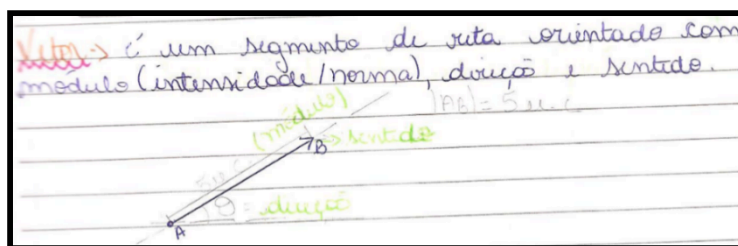 Vetor → é um segmento de reta orientado com
módulo (intensidade/norma), direção e sentido.
|AB| = 5 u.c
(módulo)
5 u.c
B → sentido
θ = direção
A